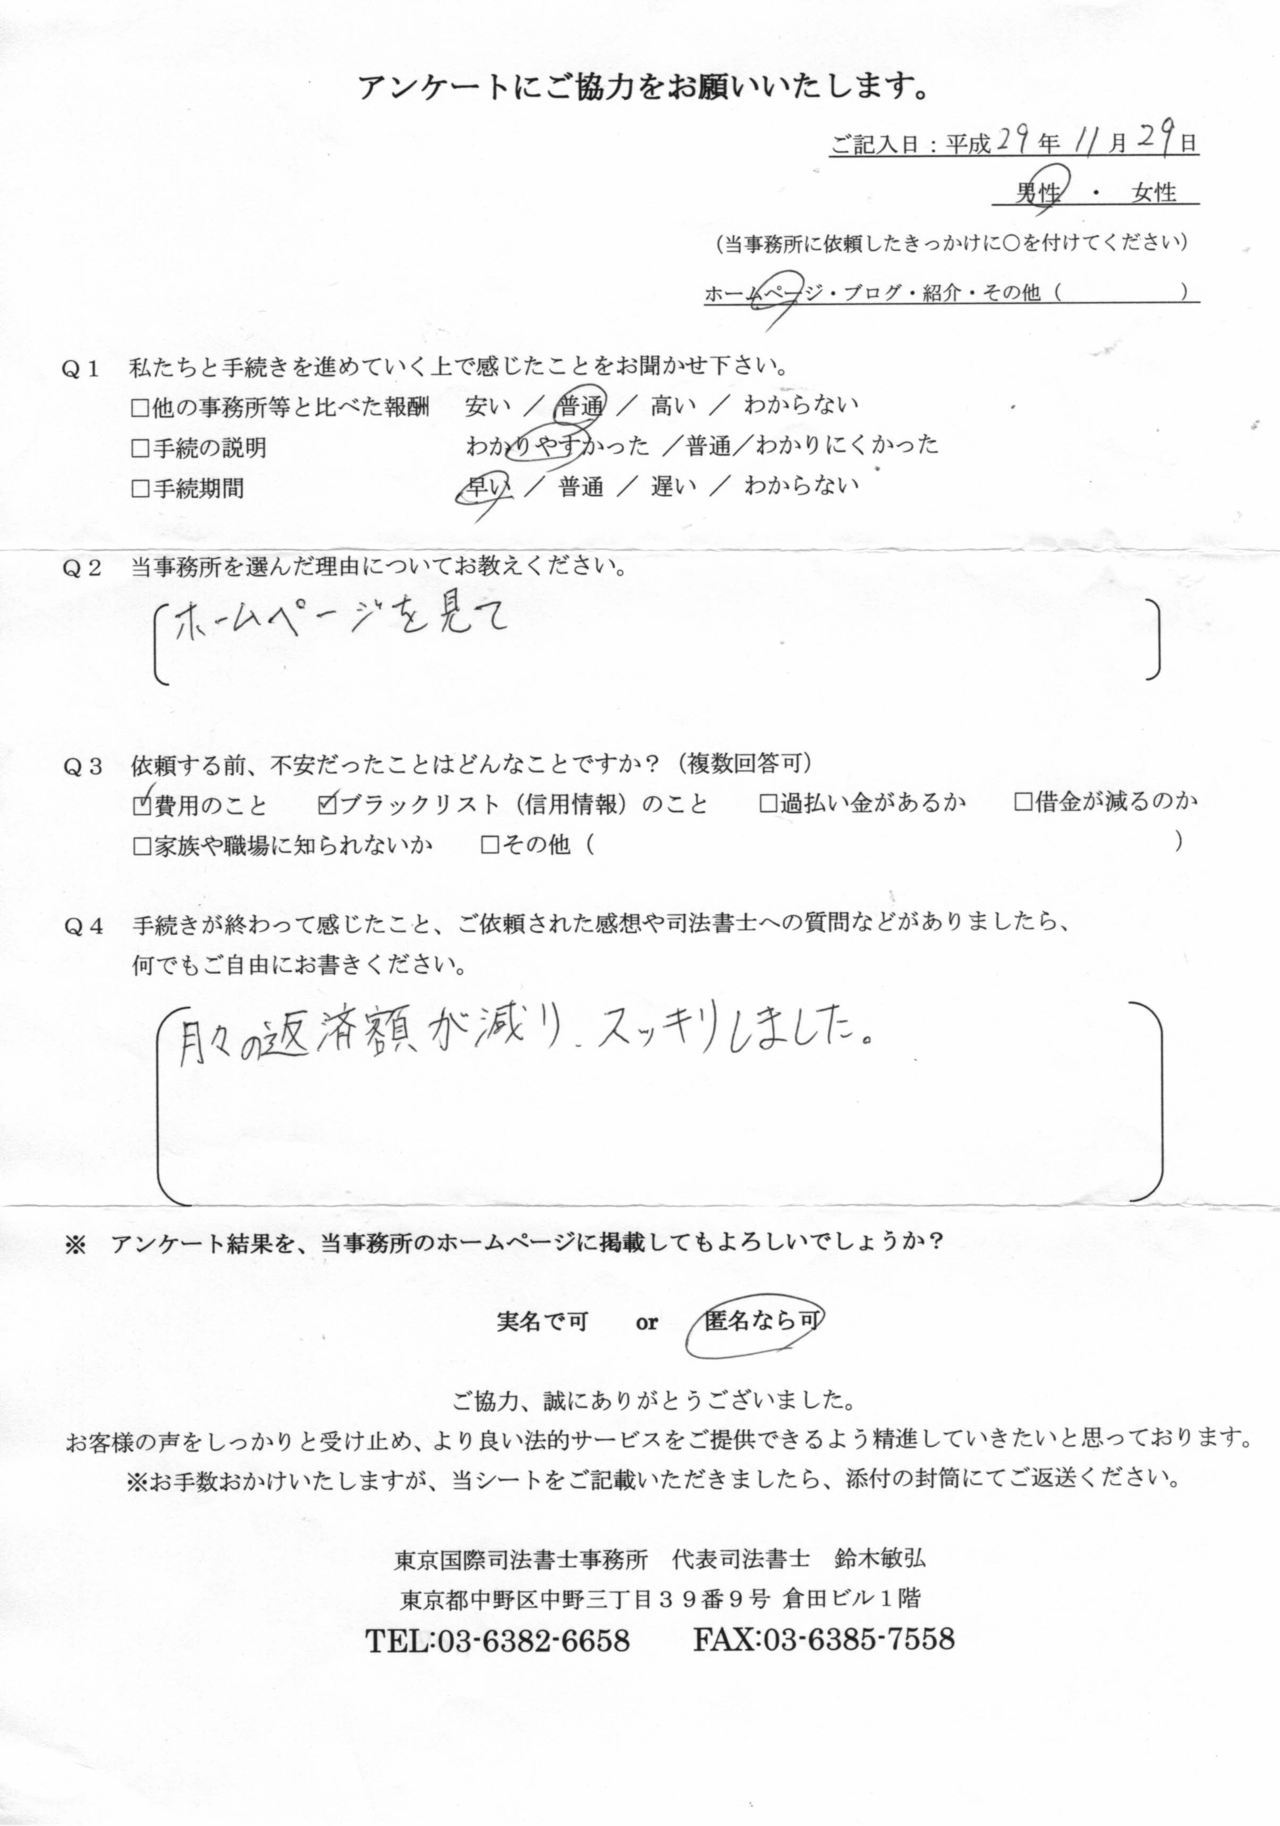 アンケートにご協力をお願いいたします。
ご記入日：平成29年11月29日
男性 ・ 女性
（当事務所に依頼したきっかけに○を付けてください）
ホームページ・ブログ・紹介・その他（　　　　　）
Q1　私たちと手続きを進めていく上で感じたことをお聞かせ下さい。
□他の事務所等と比べた報酬　安い ／ 普通 ／ 高い ／ わからない
□手続の説明　わかりやすかった ／普通／わかりにくかった
□手続期間　早い ／ 普通 ／ 遅い ／ わからない
Q2　当事務所を選んだ理由についてお教えください。
ホームページを見て
Q3　依頼する前、不安だったことはどんなことですか？（複数回答可）
☑費用のこと　☑ブラックリスト（信用情報）のこと　□過払い金があるか　□借金が減るのか
□家族や職場に知られないか　□その他（　　　　　）
Q4　手続きが終わって感じたこと、ご依頼された感想や司法書士への質問などがありましたら、
何でもご自由にお書きください。
月々の返済額が減り、スッキリしました。
※　アンケート結果を、当事務所のホームページに掲載してもよろしいでしょうか？
実名で可　or　匿名なら可
ご協力、誠にありがとうございました。
お客様の声をしっかりと受け止め、より良い法的サービスをご提供できるよう精進していきたいと思っております。
※お手数おかけいたしますが、当シートをご記載いただきましたら、添付の封筒にてご返送ください。
東京国際司法書士事務所　代表司法書士　鈴木敏弘
東京都中野区中野三丁目３９番９号 倉田ビル１階
TEL:03-6382-6658　FAX:03-6385-7558